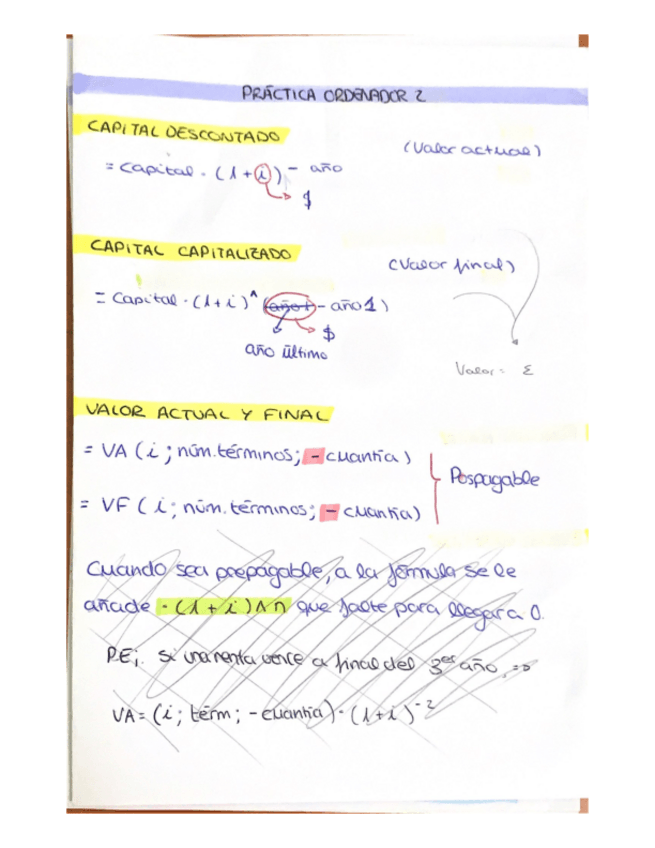 PRÁCTICA ORDENADOR 2
CAPITAL DESCONTADO
(Valor actual)
= Capital · (1+i)⁻ año
$
CAPITAL CAPITALIZADO
(Valor final)
= Capital · (1+i)^(año1 - año1)
$
año último
Valor = Σ
VALOR ACTUAL Y FINAL
= VA (i ; núm.términos; - cuantía)
Pospagable
= VF (i; núm. términos; - cuantía)
Cuando sea prepagable, a la fórmula se le
añade · (1+i)^n que falte para llegar a 0.
P.Ej. Si una renta vence a final del 3er año, =>
VA = (i ; térm ; - cuantía) · (1+i)⁻²